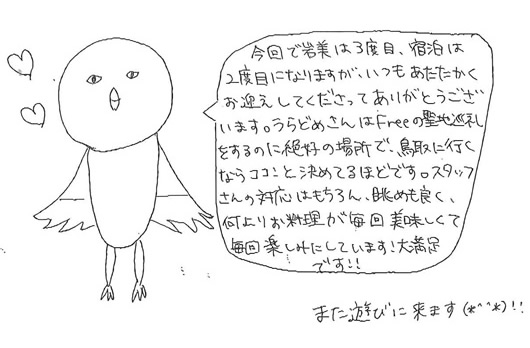 今回で岩美は3度目、宿泊は
2度目になりますが、いつもあたたかく
お迎えしてくださってありがとうござ
います。うらどめさんはFreeの聖地巡礼
をするのに絶好の場所で、鳥取に行く
ならココ!と決めてるほどです。スタッフ
さんの対応はもちろん、眺めも良く、
何よりお料理が毎回美味しくて
毎回楽しみにしています!大満足
です!!
また遊びに来ます(*^^*)!!